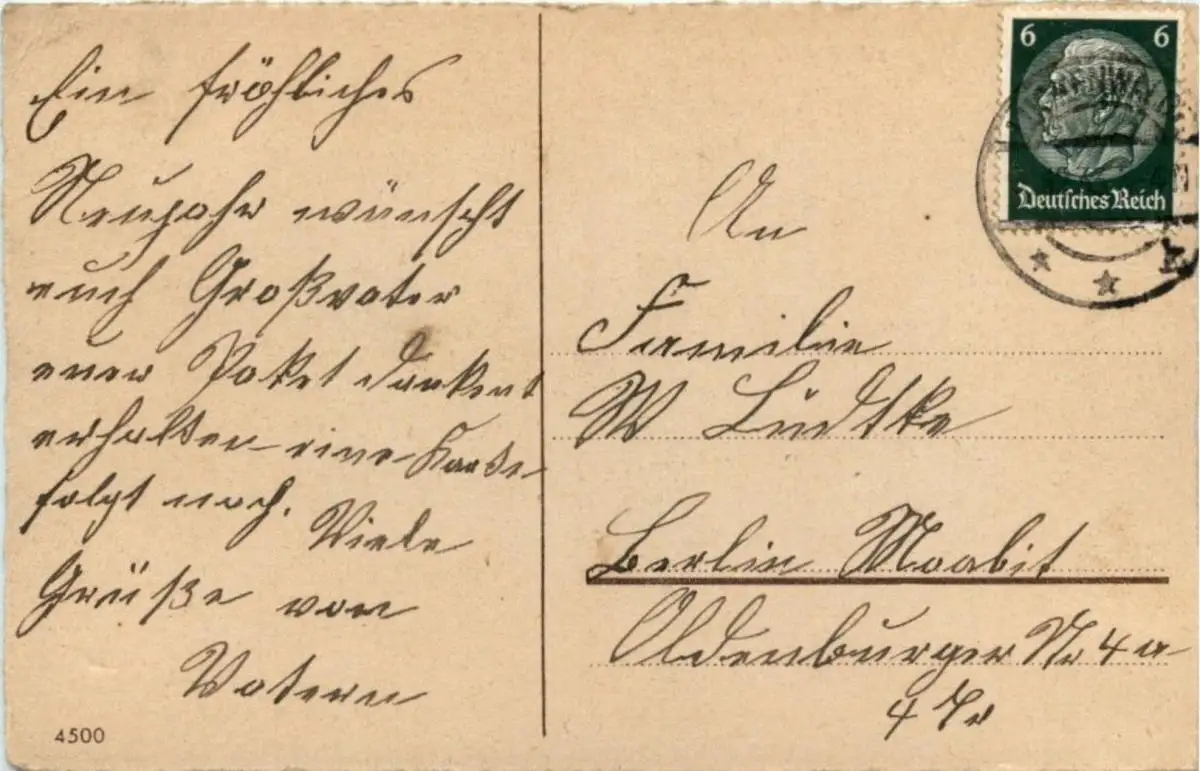 Ein fröhliches
Neujahr wünscht
euch Großvater
euer Paket dankent
erhalten eine Karte
folgt noch. Viele
Grüße von
Vatern
4500
6 6
Deutsches Reich
An
Familie
W Lüdtke
Berlin Moabit
Oldenburger Nr 4 a
4 Tr